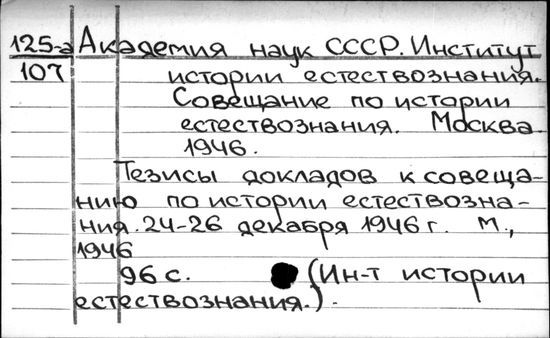 125-а Академия наук СССР. Институт
107 истории естествознания.
Совещание по истории
естествознания. Москва
1946.
Тезисы докладов к совеща-
нию по истории естествозна-
ния. 24-26 декабря 1946 г. М.,
1946
96 с. (Ин-т истории
естествознания.).